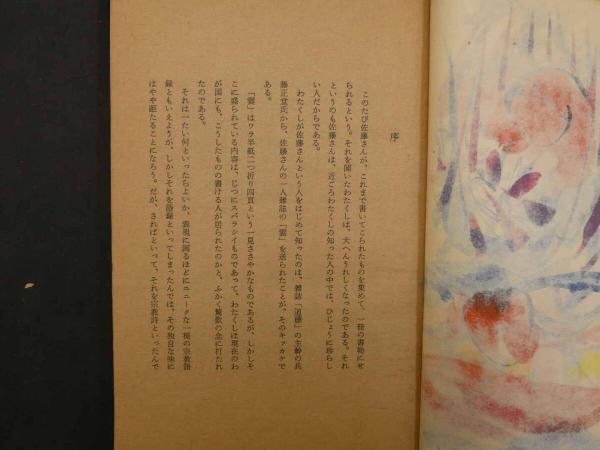 序
このたび佐藤さんが、これまで書いてこられたものを集めて、一種の書物にせ
られるという。それを聞いたわたくしは、大へんうれしくなったのである。それ
というのも佐藤さんは、近ごろわたくしの知った人の中では、ひじょうに珍らし
い人だからである。
わたくしが佐藤さんという人をはじめて知ったのは、雑誌「道藤」の主幹の兵
藤正堂氏から、佐藤さんの一人雑誌の「雲」を送られたことが、そのキッカケで
ある。
「雲」はワラ半紙二つ折り四頁という一見ささやかなものであるが、しかしそ
こに盛られている内容は、じつにスバラシイものであって、わたくしは現在のわ
が国にも、こうしたものの書ける人が居られたのかと、ふかく驚歎の念に打たれ
たのである。
それは一たい何といったらよいか、表現に困るほどにユニークな一種の宗教語
録ともいえようが、しかしそれを語録といってしまったんでは、その独自な味に
はやや距たることになろう。だが、さればといって、それを宗教詩といったんで